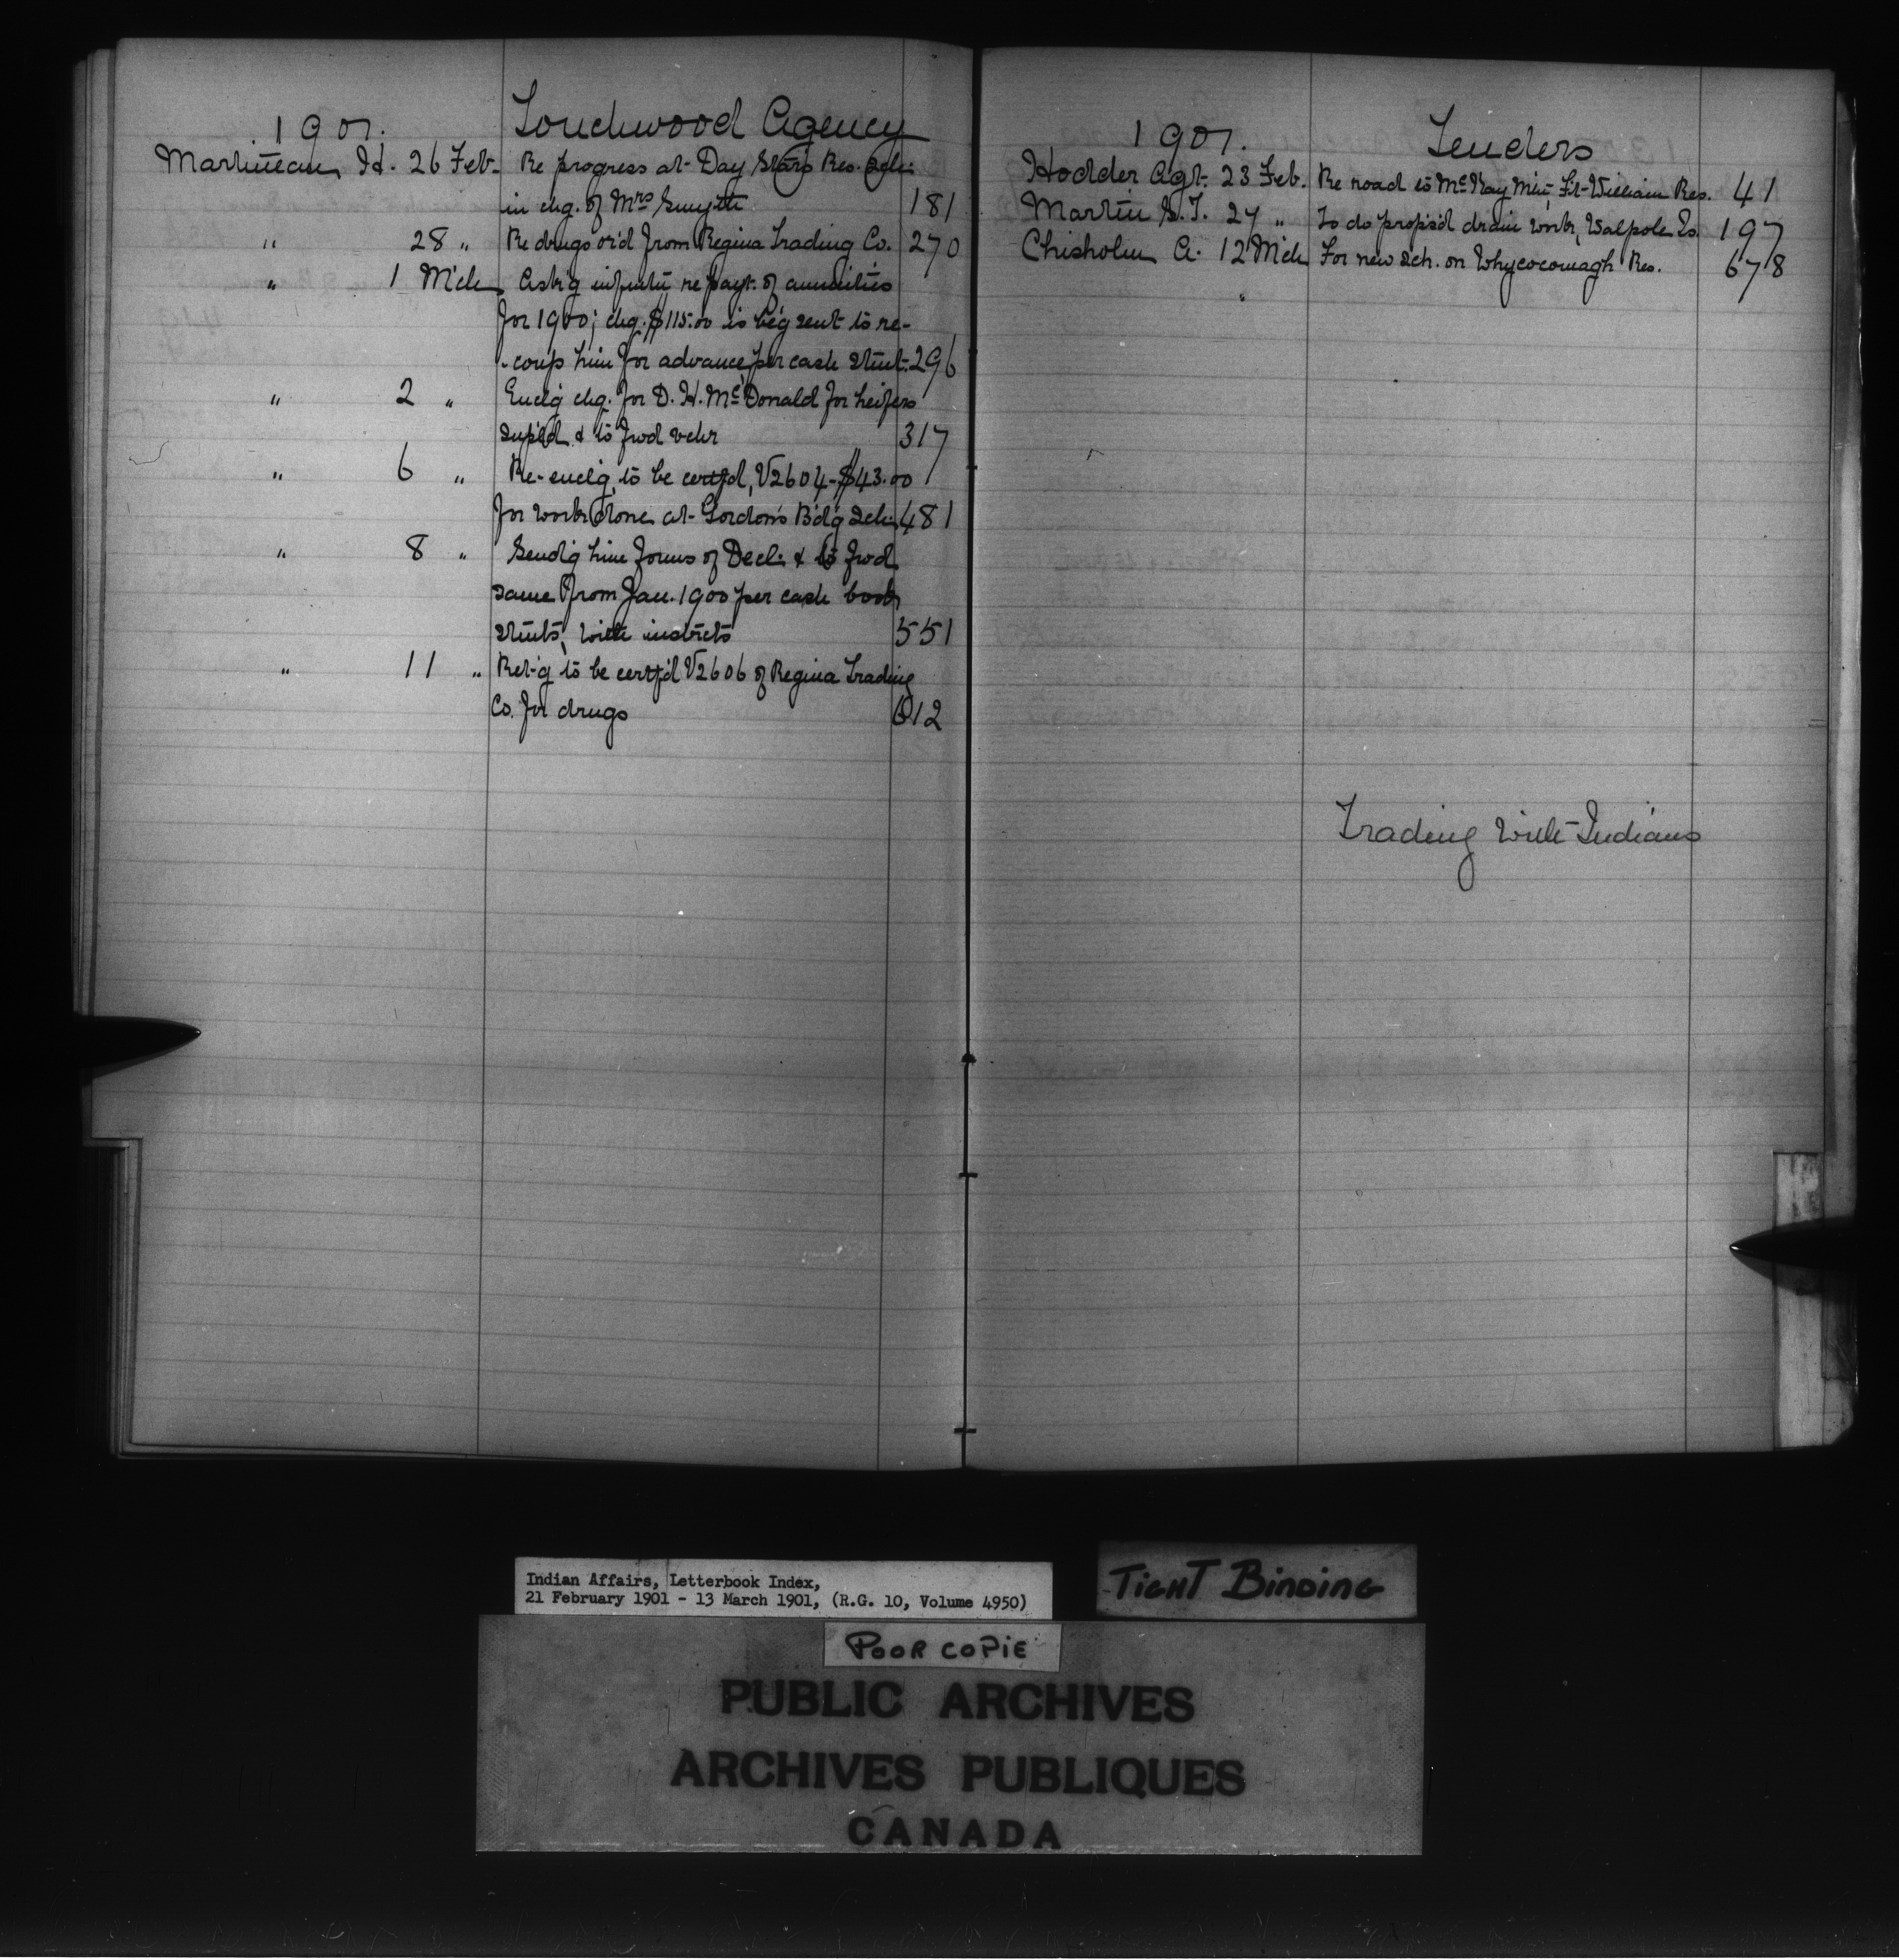 1901. Touchwood Agency
Martineau, H. 26 Feb. Re progress at Day Star's Res. Sch.
in chg. of Mrs Smyth 181
" 28 " Re drugs or'd from Regina Trading Co. 270
" 1 Mch Ask'g infmtn re payt. of annuities
for 1900; chq. $115.00 is be'g sent to re-
-coup him for advance per cash stmt. 296
" 2 " Encl'g chq. for D. H. McDonald for heifers
suppl'd & to fwd vchr 317
" 6 " Re-encl'g, to be certf'd, V2604-$43.00
for work done at Gordon's B'd'g Sch. 481
" 8 " Send'g him forms of Decl. & to fwd
same from Jan. 1900 per cash book
stmts, with instrcts 551
" 11 " Ret'g to be certf'd V2606 of Regina Trading
Co. for drugs 612
1901. Tenders
Hodder Agt. 23 Feb. Re road to McKay Mtn, Ft William Res. 41
Martin S.T. 27 " To do props'd drain work, Walpole Is. 197
Chisholm A. 12 Mch For new Sch. on Whycocomagh Res. 678
Trading with Indians
Indian Affairs, Letterbook Index,
21 February 1901 - 13 March 1901, (R.G. 10, Volume 4950)
TIGHT BINDING
POOR COPIE
PUBLIC ARCHIVES
ARCHIVES PUBLIQUES
CANADA